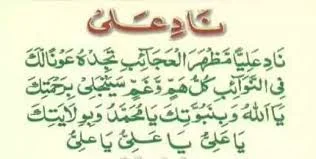 نَادِ عَلِی
نَادِ عَلِيًّا مَّظْهَرَ الْعَجَائِبِ تَجِدْهُ عَوْنًا لَّكَ
فِي النَّوَائِبِ كُلُّ هَمٍّ وَّغَمٍّ سَيَنْجَلِي بِرَحْمَتِكَ
يَا اَللهُ وَبِنُبُوَّتِكَ يَا مُحَمَّدُ وَبِوِلَايَتِكَ
يَا عَلِیُّ يَا عَلِیُّ يَا عَلِیُّ